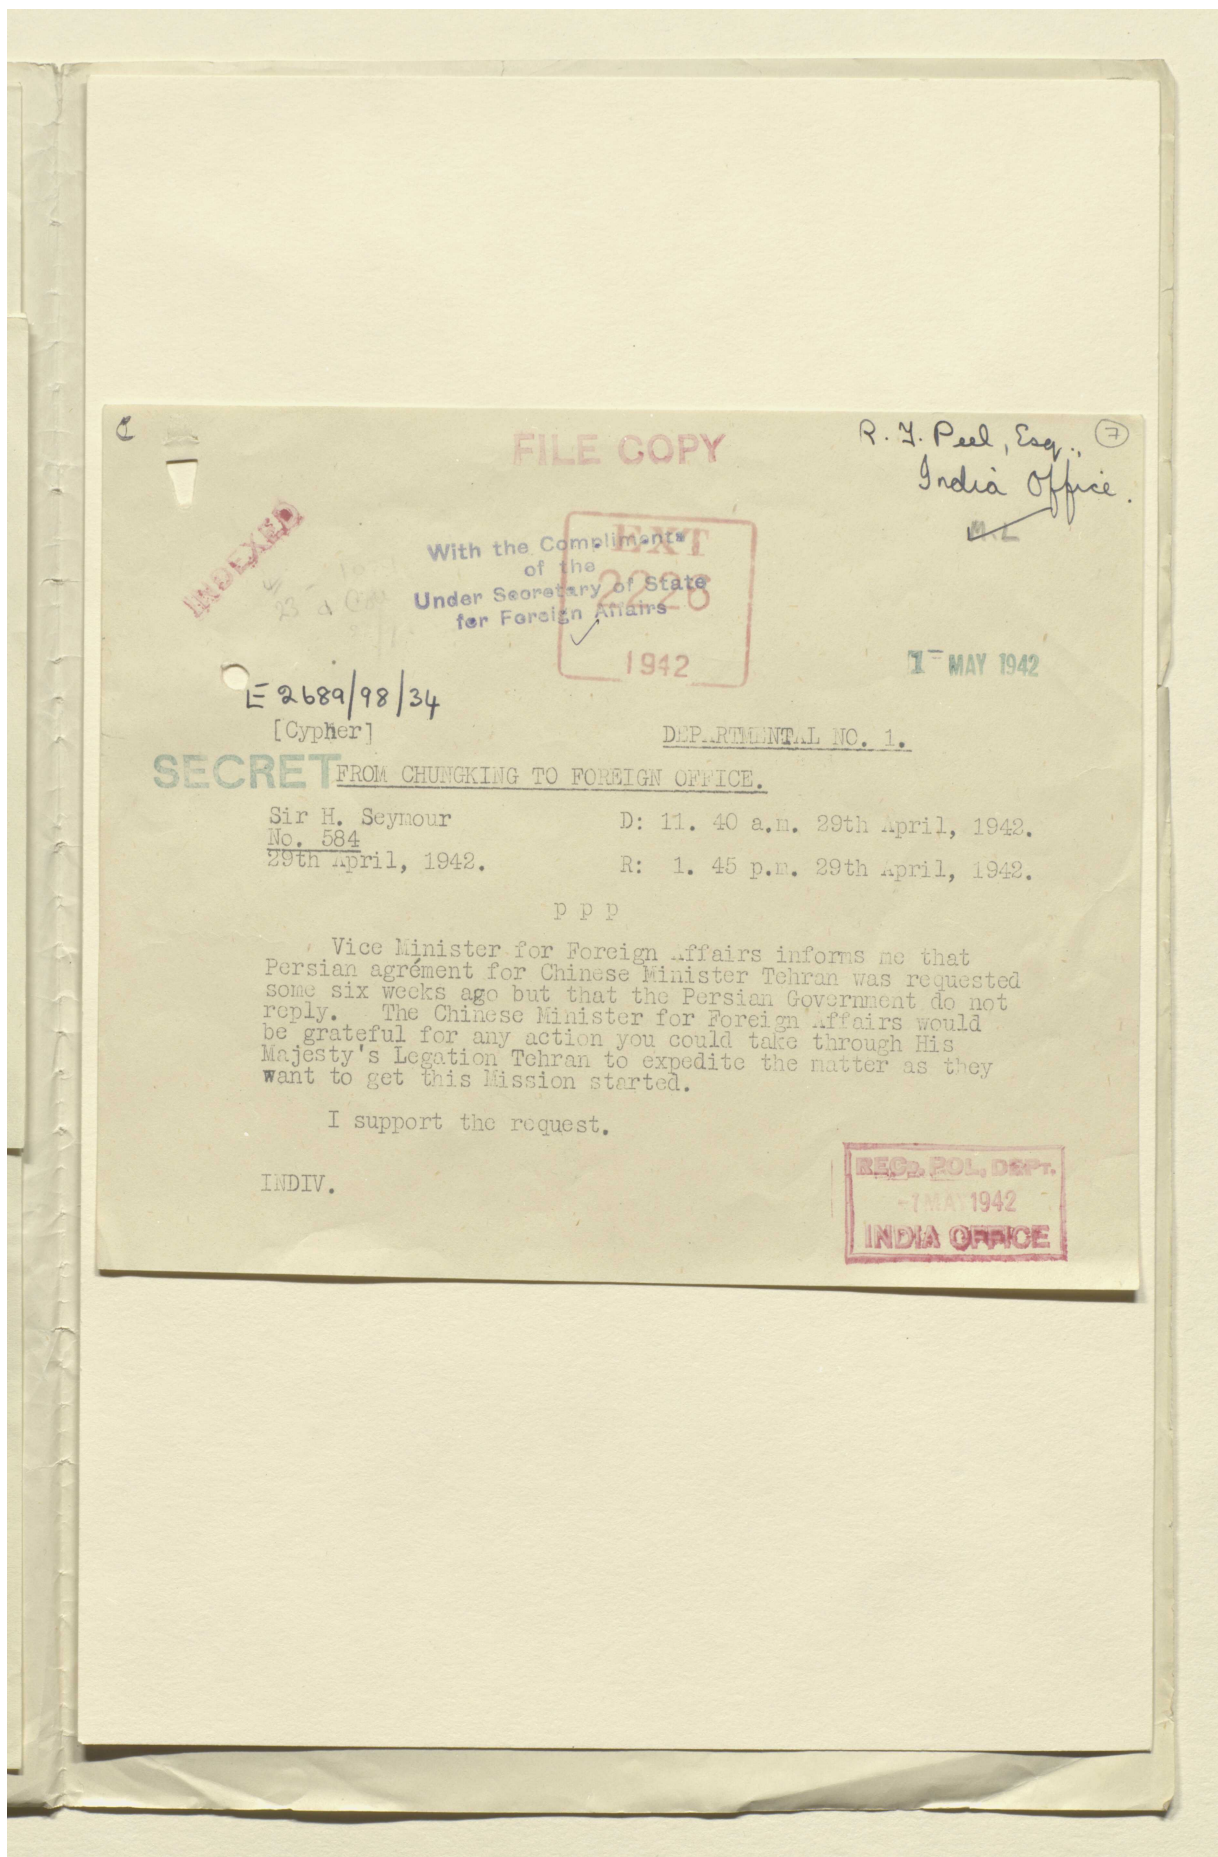 C
FILE COPY
R. F. Peel, Esq., 7
India Office.
M.L
INDEXED
EXT
2226
1942
With the Compliments
of the
Under Secretary of State
for Foreign Affairs
1 - MAY 1942
E 2689/98/34
[Cypher]
DEPARTMENTAL NO. 1.
SECRET
FROM CHUNGKING TO FOREIGN OFFICE.
Sir H. Seymour
D: 11. 40 a.m. 29th April, 1942.
No. 584
29th April, 1942.
R: 1. 45 p.m. 29th April, 1942.
p p p
Vice Minister for Foreign Affairs informs me that
Persian agrément for Chinese Minister Tehran was requested
some six weeks ago but that the Persian Government do not
reply. The Chinese Minister for Foreign Affairs would
be grateful for any action you could take through His
Majesty's Legation Tehran to expedite the matter as they
want to get this Mission started.
I support the request.
INDIV.
RECD. POL. DEPT.
MAY 1942
INDIA OFFICE